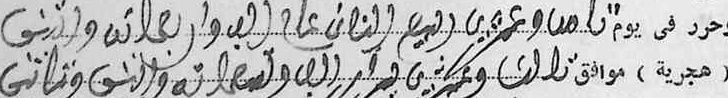 وحرر فى يوم ثامن وعشرين ربيع الثاني عام الف واربعمائة واثنين
( هجرية ) موافق ثالث وعشرين فبراير الف وتسعمائة واثنين وثمانين